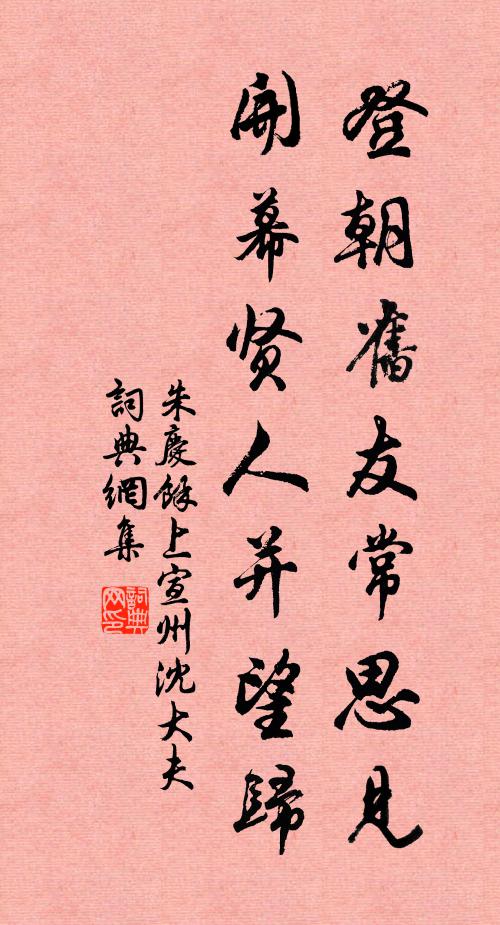 登朝舊友常思見
開幕贤人并望歸
朱慶餘上宣州沈大夫
詞典網集
詞典網印